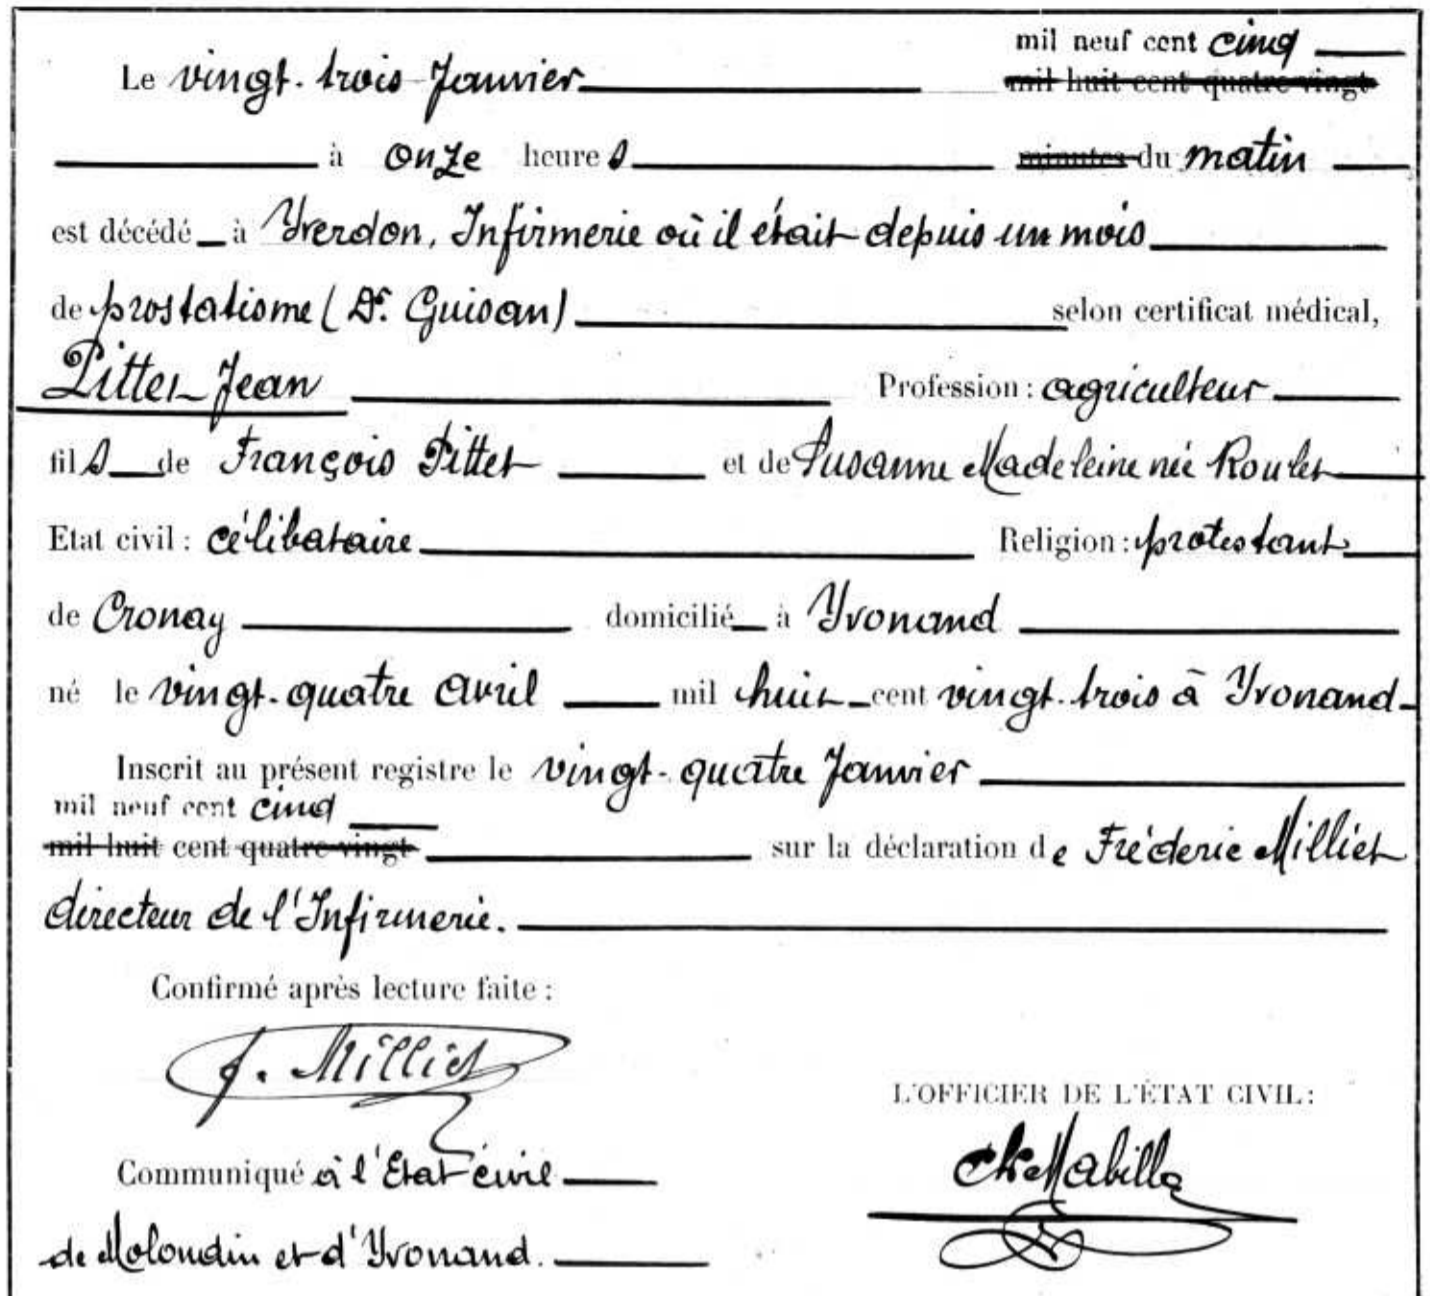 mil neuf cent cinq
Le vingt-trois Janvier mil huit cent quatre-vingt
à onze heures minutes du matin
est décédé à Yverdon, Infirmerie où il était depuis un mois
de prostatisme (Dr. Guisan) selon certificat médical,
Pittet Jean Profession : agriculteur
fils de François Pittet et de Susanne Madeleine née Roulet
Etat civil : célibataire Religion : protestant
de Cronay domicilié à Yvonand
né le vingt-quatre Avril mil huit cent vingt-trois à Yvonand
Inscrit au présent registre le vingt-quatre Janvier
mil neuf cent cinq
mil huit cent quatre-vingt sur la déclaration de Fréderic Milliet
directeur de l'Infirmerie.
Confirmé après lecture faite :
f. Milliet
L'OFFICIER DE L'ÉTAT CIVIL :
Ch. Mabille
Communiqué à l'Etat civil
de Molondin et d'Yvonand.